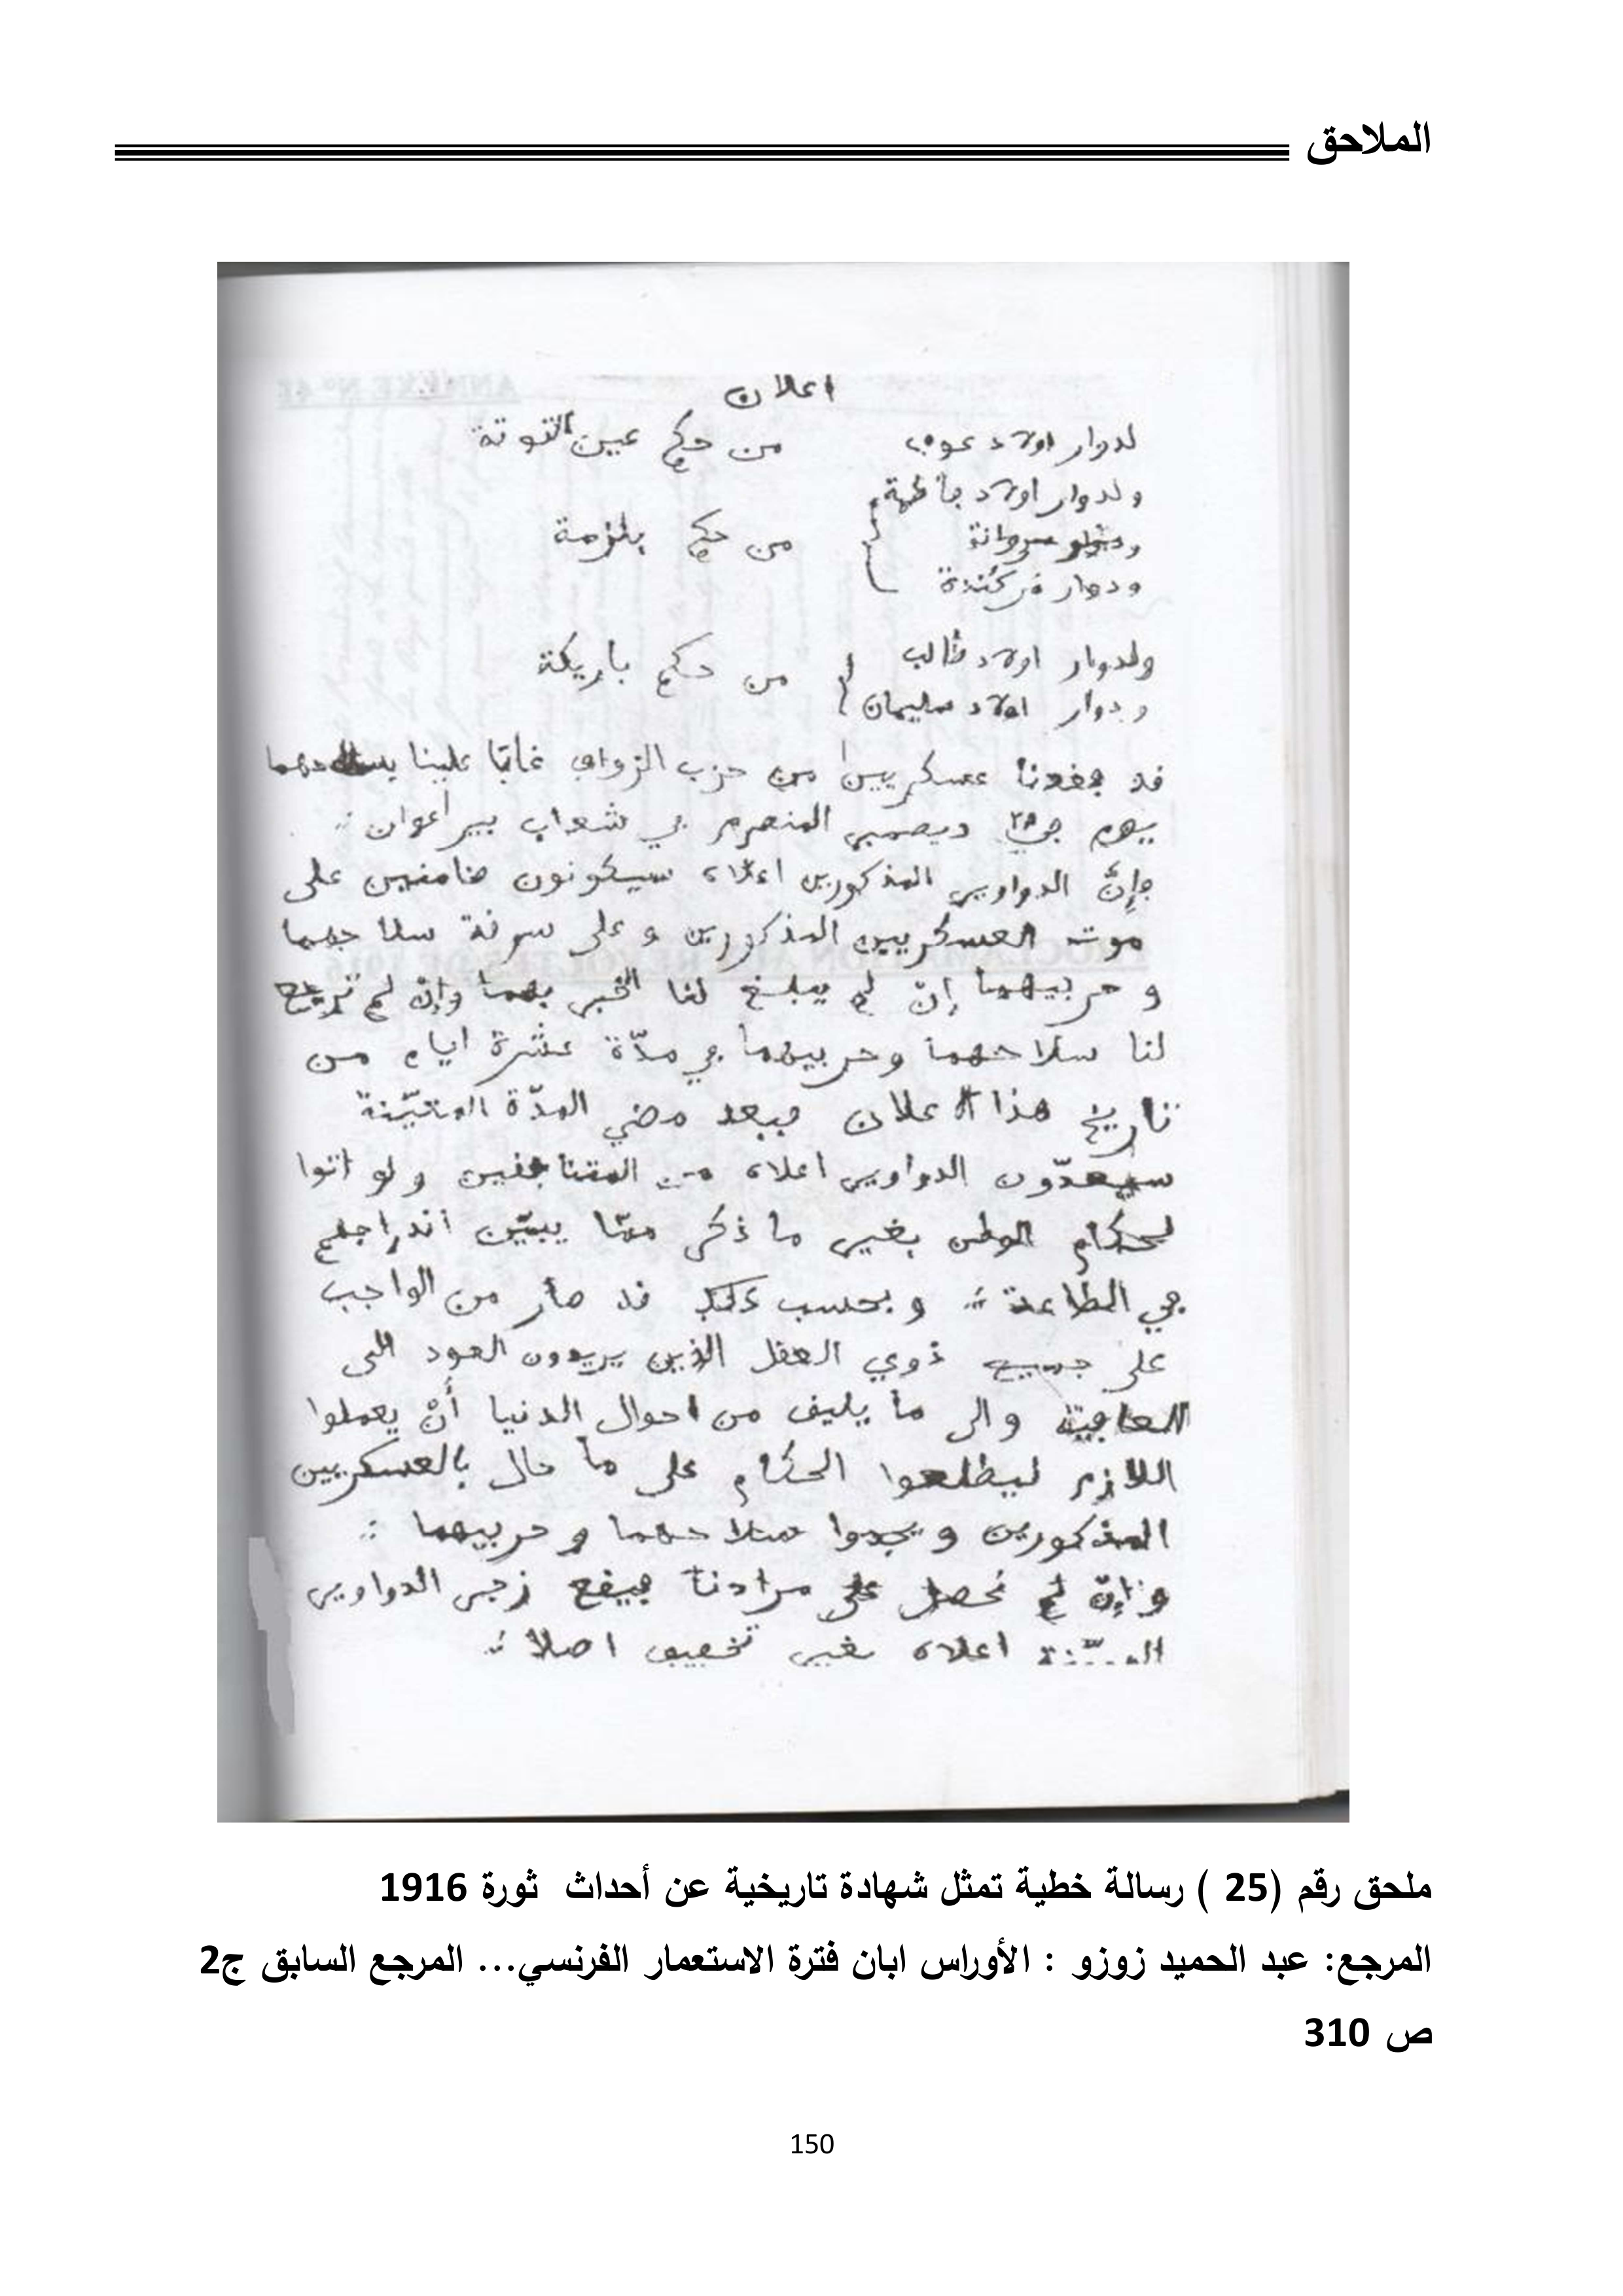 الملاحق
اعلان
لدوار اولاد عوف من حكم عين التوتة
ولدوار اولاد فاطمة
ودوار مروانة من حكم بلزمة
ودوار مركندة
ولدوار اولاد طالب من حكم باريكة
ودوار اولاد سليمان
قد فقدنا عسكريين من حزب الزواف غابا علينا بسلاحهما
يوم ديصمبر المنصرم في شعاب بير اعوان
فإنّ الدواوير المذكورين اعلاه سيكونون ضامنين على
موت العسكريين المذكورين وعلى سرقة سلاحهما
و حربيهما إنْ لم يبلغ لنا الخبر بهما وإنْ لم ترجع
لنا سلاحهما وحربيهما في مدّة عشرة ايام من
تاريخ هذا الاعلان فبعد مضي المدّة المتيّنة
سيعدّون الدواوير اعلاه من المتنافقين ولو اتوا
لحكام الوطن بغير ما ذكر ممّا يبيّن اندراجهم
في الطاعة وبحسب ذلك قد صار من الواجب
على جميع ذوي العقل الذين يريدون العود الى
العافية والى ما يليق من احوال الدنيا أنْ يعملوا
اللازم ليطلعوا الحكام على ما حال بالعسكريين
المذكورين ويجدوا سلاحهما وحربيهما
وإنْ لم نحصل على مرادنا فيقع زجر الدواوير
المبيّنة اعلاه بغير تخفيف اصلا
ملحق رقم (25 ) رسالة خطية تمثل شهادة تاريخية عن أحداث ثورة 1916
المرجع: عبد الحميد زوزو : الأوراس ابان فترة الاستعمار الفرنسي... المرجع السابق ج2
ص 310
150